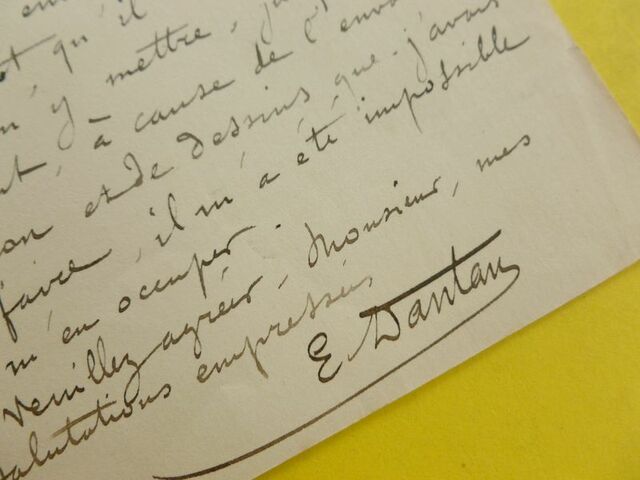 qu'il
y mettre,
à cause de l'envoi
et de dessins que j'avais
faire, il m'a été impossible
m'en occuper.
Veuillez agréer, Monsieur, mes
salutations empressées
E. Dantan